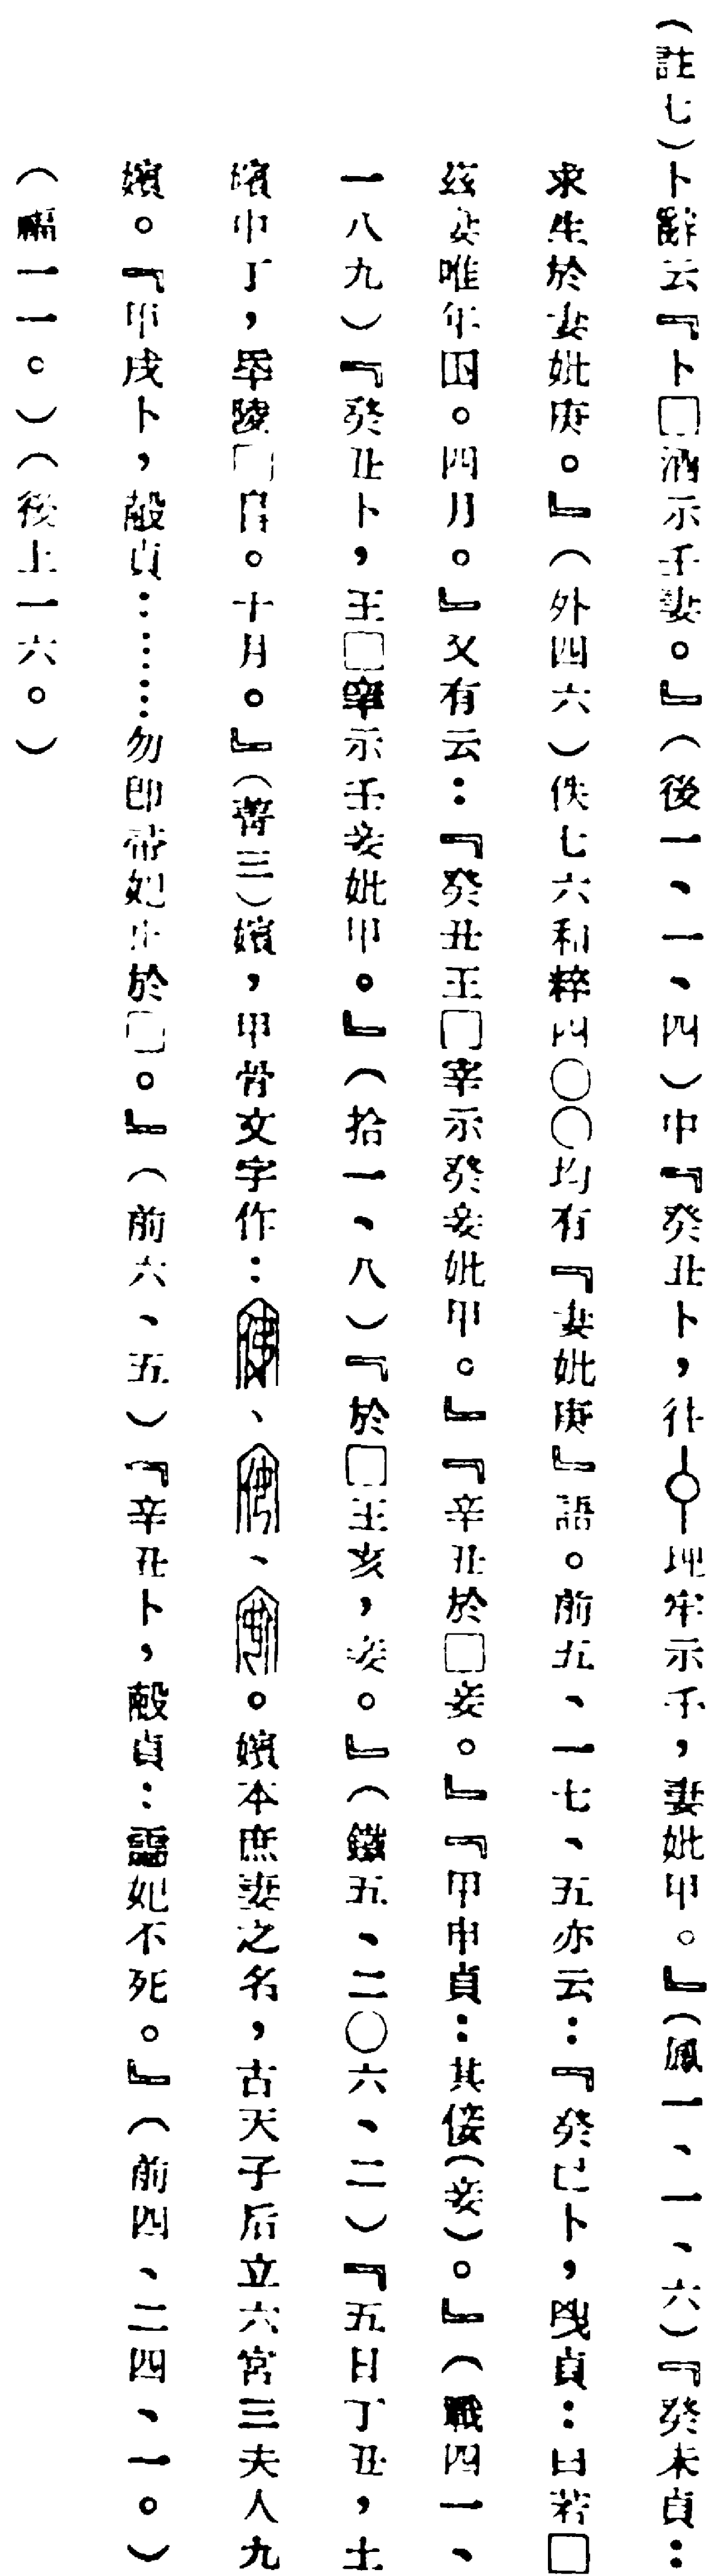 （註七）卜辭云『卜□酒示壬妻。』（後一、一、四）中『癸丑卜，往 牢示壬，妻妣甲。』（鳳一、一、六）『癸未貞：
求生於妻妣庚。』（外四六）佚七六和粹四〇〇均有『妻妣庚』語。前五、一七、五亦云：『癸巳卜，貞：曰若□
茲妻唯年囚。四月。』又有云：『癸丑王□宰示癸妾妣甲。』『辛丑於□妾。』『甲申貞：其倿（妾）。』（戰四一、
一八九）『癸丑卜，王□宰示壬妾妣甲。』（拾一、八）『於□王亥，妾。』（鐵五、二〇六、二）『五日丁丑，土
嬪中丁，陵□𠂤。十月。』（菁三）嬪，甲骨文字作：、、。嬪本庶妻之名，古天子后立六宮三夫人九
嬪。『甲戌卜，㱿貞：……勿即帝妃止於□。』（前六、五）『辛丑卜，㱿貞：妃不死。』（前四、二四、一。）
（一一。）（後上一六。）